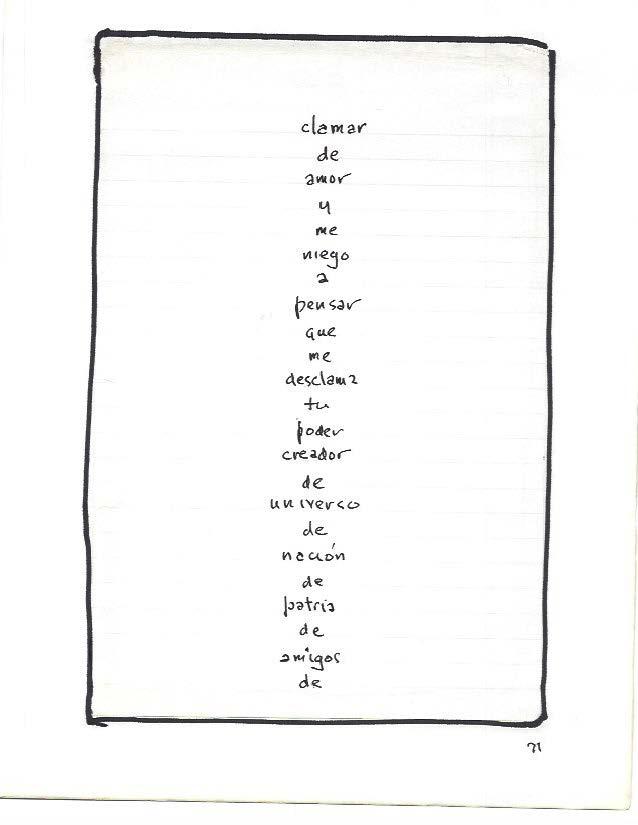 clamar
de
amor
y
me
niego
a
pensar
que
me
desclama
tu
poder
creador
de
universo
de
nación
de
patria
de
amigos
de
71